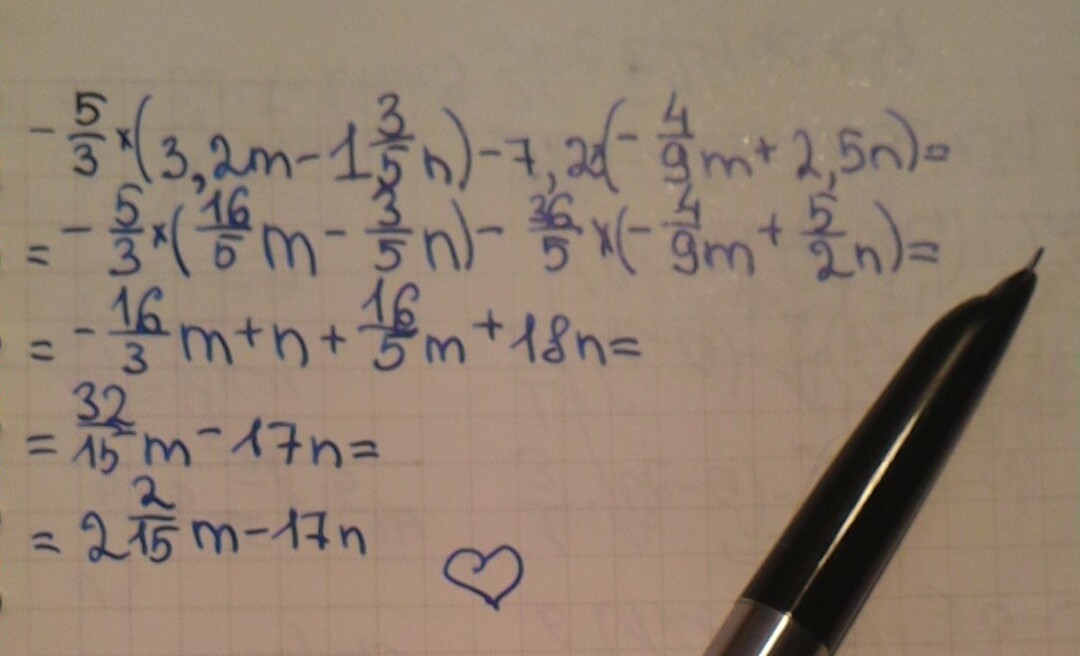 - 5/3 × (3,2m - 1 3/5 n) - 7,2(- 4/9 m + 2,5n) =
= - 5/3 × (16/5 m - 3/5 n) - 36/5 × (- 4/9 m + 5/2 n) =
= - 16/3 m + n + 16/5 m + 18n =
= 32/15 m - 17n =
= 2 2/15 m - 17n